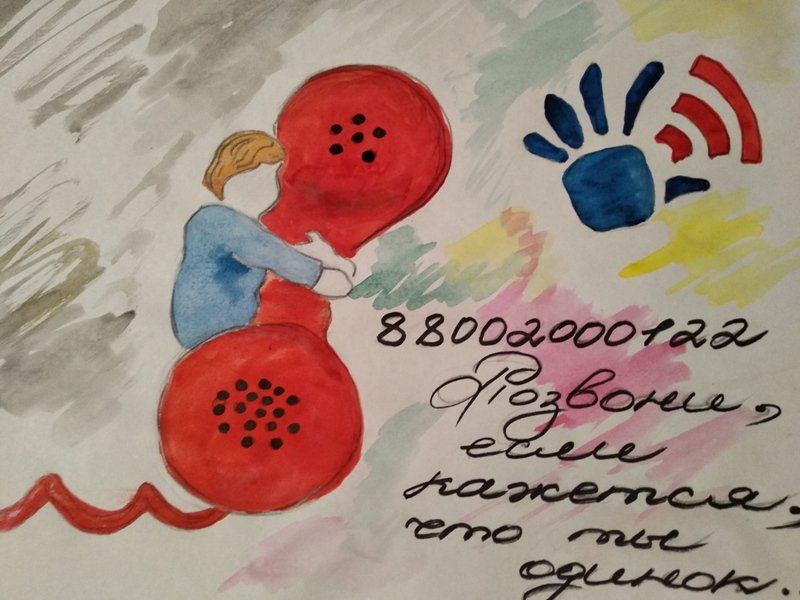 88002000122
Позвони,
если
кажется,
что ты
одинок..